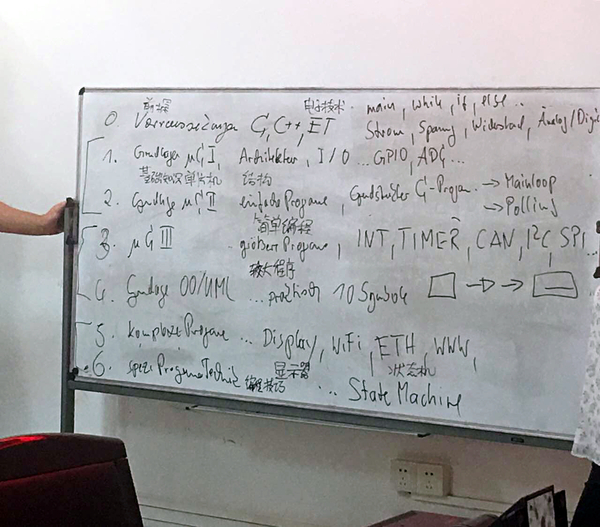 前提 电子技术 main, while, if, else ..
0. Voraussetzungen C, C++, ET Strom, Spanng, Widerstand, Analog/Digi
1. Grundlagen µC I, Architektur, I/O ... GPIO, ADC ...
基础知识单片机 结构
2. Grundlage µC II einfache Programe, C-Program → Mainloop
→ Polling
简单编程
3. µC III größere Programe, INT, TIMER, CAN, I²C, SPI...
较大程序
4. Grundlage OO/UML ... 10 Symbole
5. Komplexe Programe ... Display, WiFi, ETH, WWW,
显示器 状态机
6. Technik 编程技巧 ... State Machine